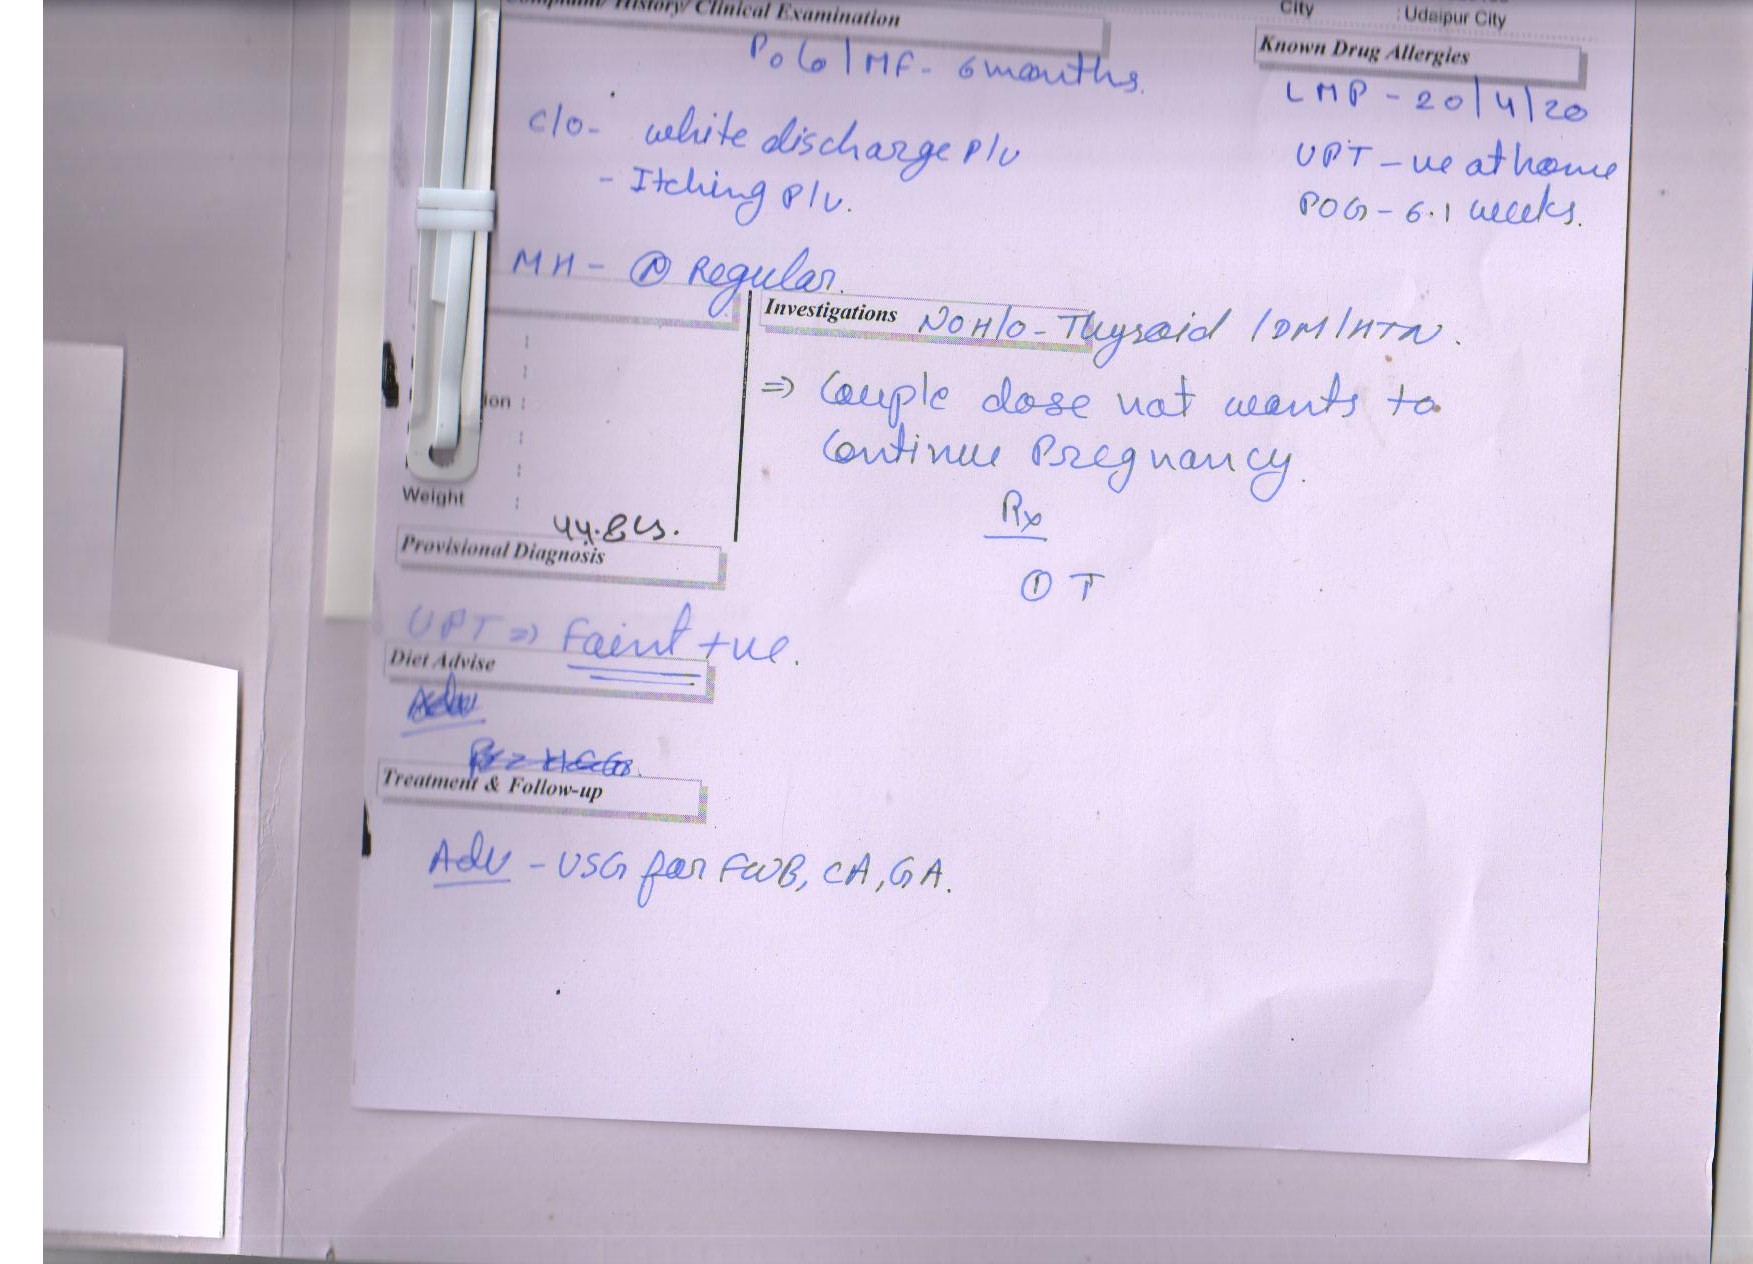 Complaint/ History/ Clinical Examination
City : Udaipur City
Known Drug Allergies
P0G1 MF - 6 months.
LMP - 20/4/20
c/o - white discharge P/v
UPT -ve at home
- Itching P/v.
POG - 6.1 weeks.
MH - (N) Regular.
Investigations No H/o - Thyroid / DM / HTN.
⇒ Couple dose not wants to
Continue Pregnancy.
ion :
Weight :
Rx
Provisional Diagnosis
① T
UPT ⇒ Faint +ve.
Diet Advise
Adv
Treatment & Follow-up
Adv - USG for FWB, CA, GA.